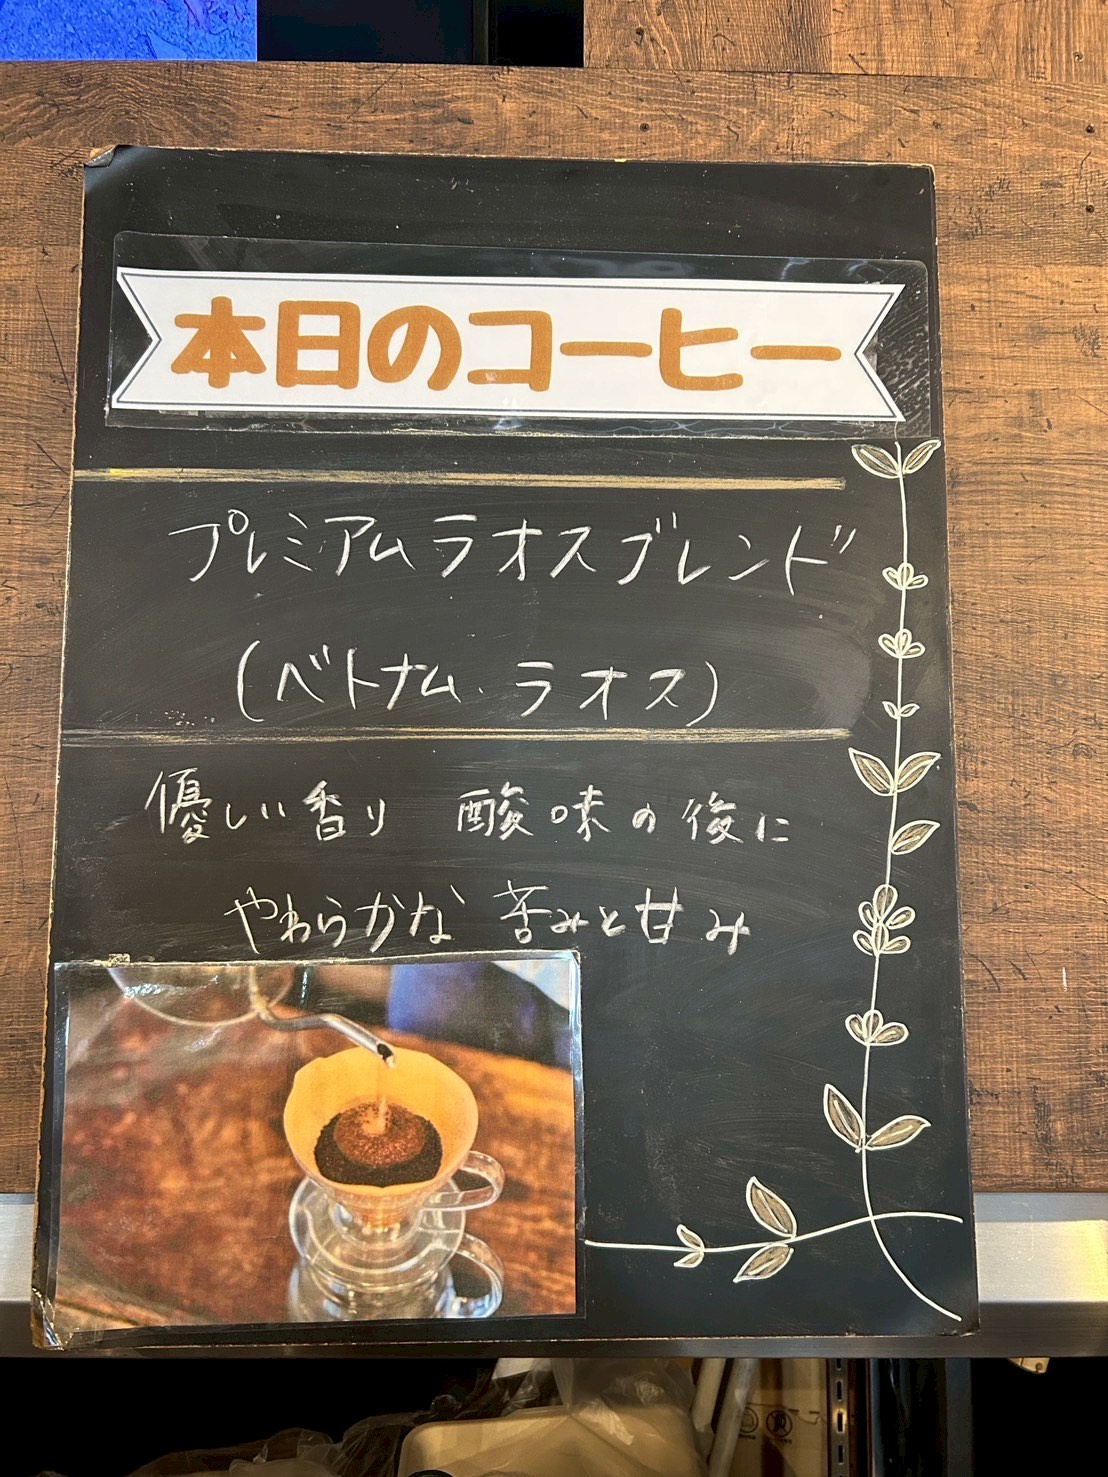 本日のコーヒー
プレミアムラオスブレンド
(ベトナム.ラオス)
優しい香り 酸味の後に
やわらかな 苦みと甘み